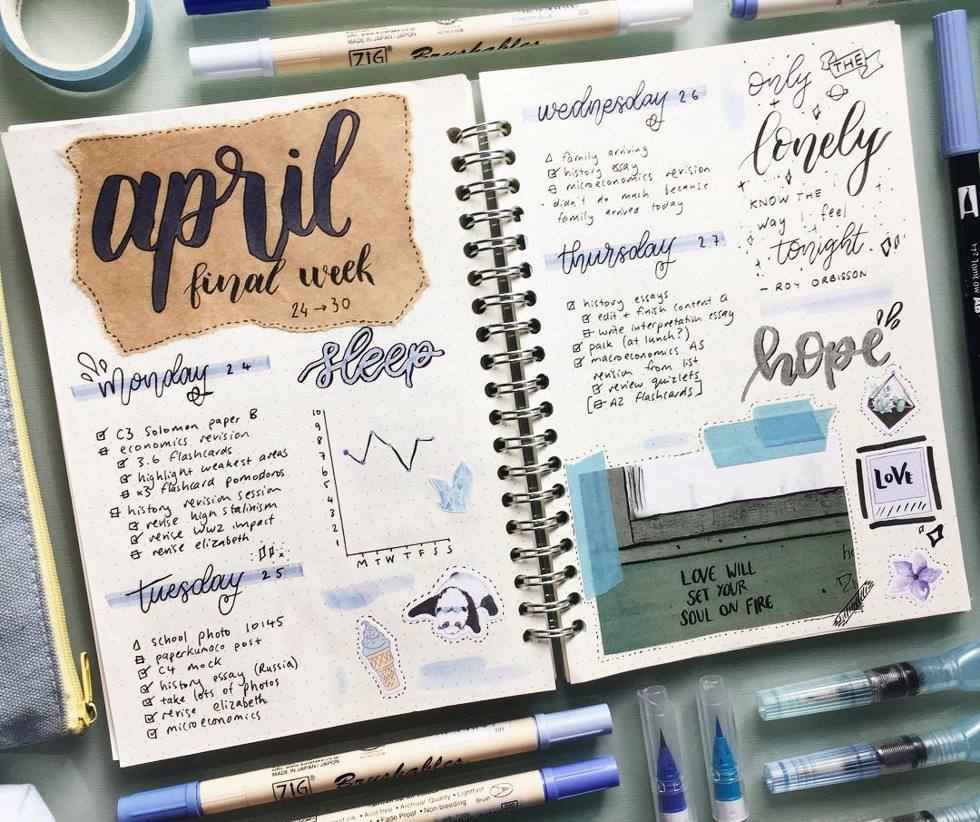 MADE IN JAPAN / JAPON
ZIG Brushables
april
final week
24 → 30
monday 24
C3 Solomon paper B
economics revision
3.6 flashcards
highlight weakest areas
x3 flashcard pomodoros
history revision session
revise high stalinism
revise ww2 impact
revise elizabeth
tuesday 25
school photo 10:45
paperkumaco post
C4 mock
history essay (Russia)
take lots of photos
revise elizabeth
microeconomics
sleep
10
9
8
7
6
5
4
3
2
1
M T W T F S S
wednesday 26
family arriving
history essay
microeconomics revision
didn't do much because
family arrived today
thursday 27
history essays
edit + finish content a
write interpretation essay
pack (at lunch?)
macroeconomics AS
revision from list
review quizlets
[A2 flashcards]
only THE
lonely
KNOW THE
way I feel
tonight
- ROY ORBISSON
hope
LOVE
LOVE WILL
SET YOUR
SOUL ON FIRE
MADE IN JAPAN / JAPON
ZIG Brushables
• Acid-free • Archival Quality • Lightfast
• Fade Proof • Non-bleeding
Brush